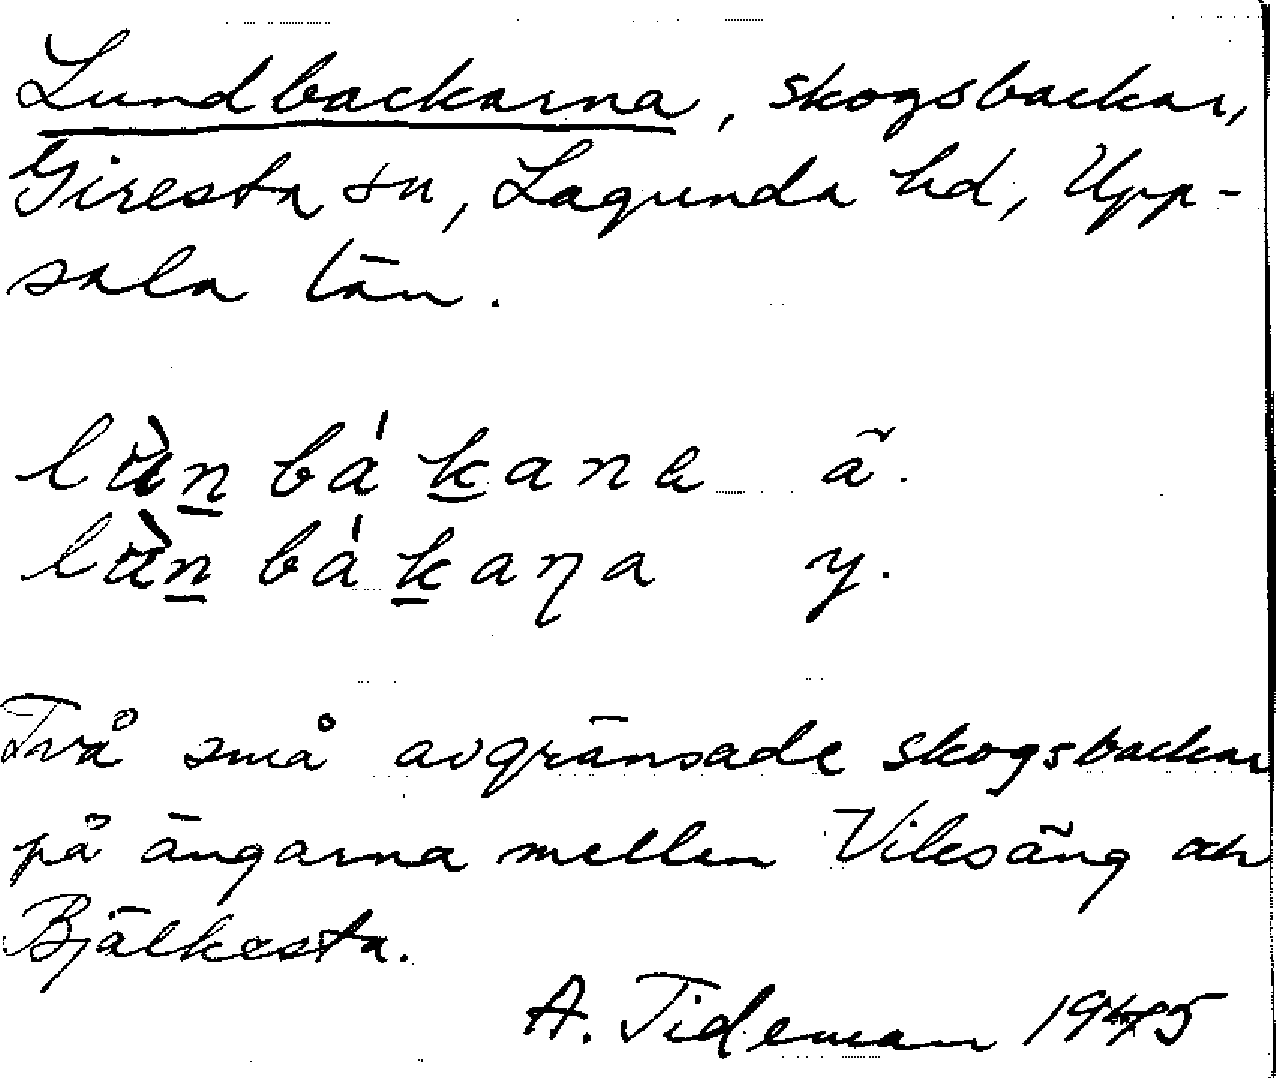 Lundbackarna, skogsbackar,
Giresta sn, Lagunda hd, Upp-
sala län.
lùn bákana ä.
lùn bákaɳa y.
Två små avgränsade skogsbackar
på ängarna mellan Viksäng och
Bjälkesta.
A. Tideman 1945